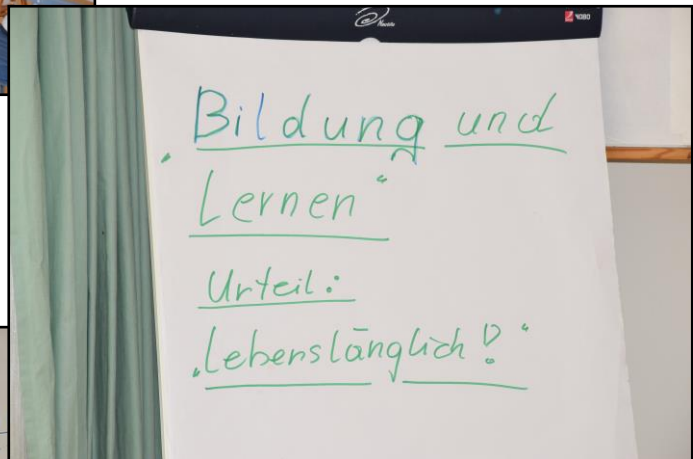 „Bildung und
Lernen“
Urteil:
„Lebenslänglich!“